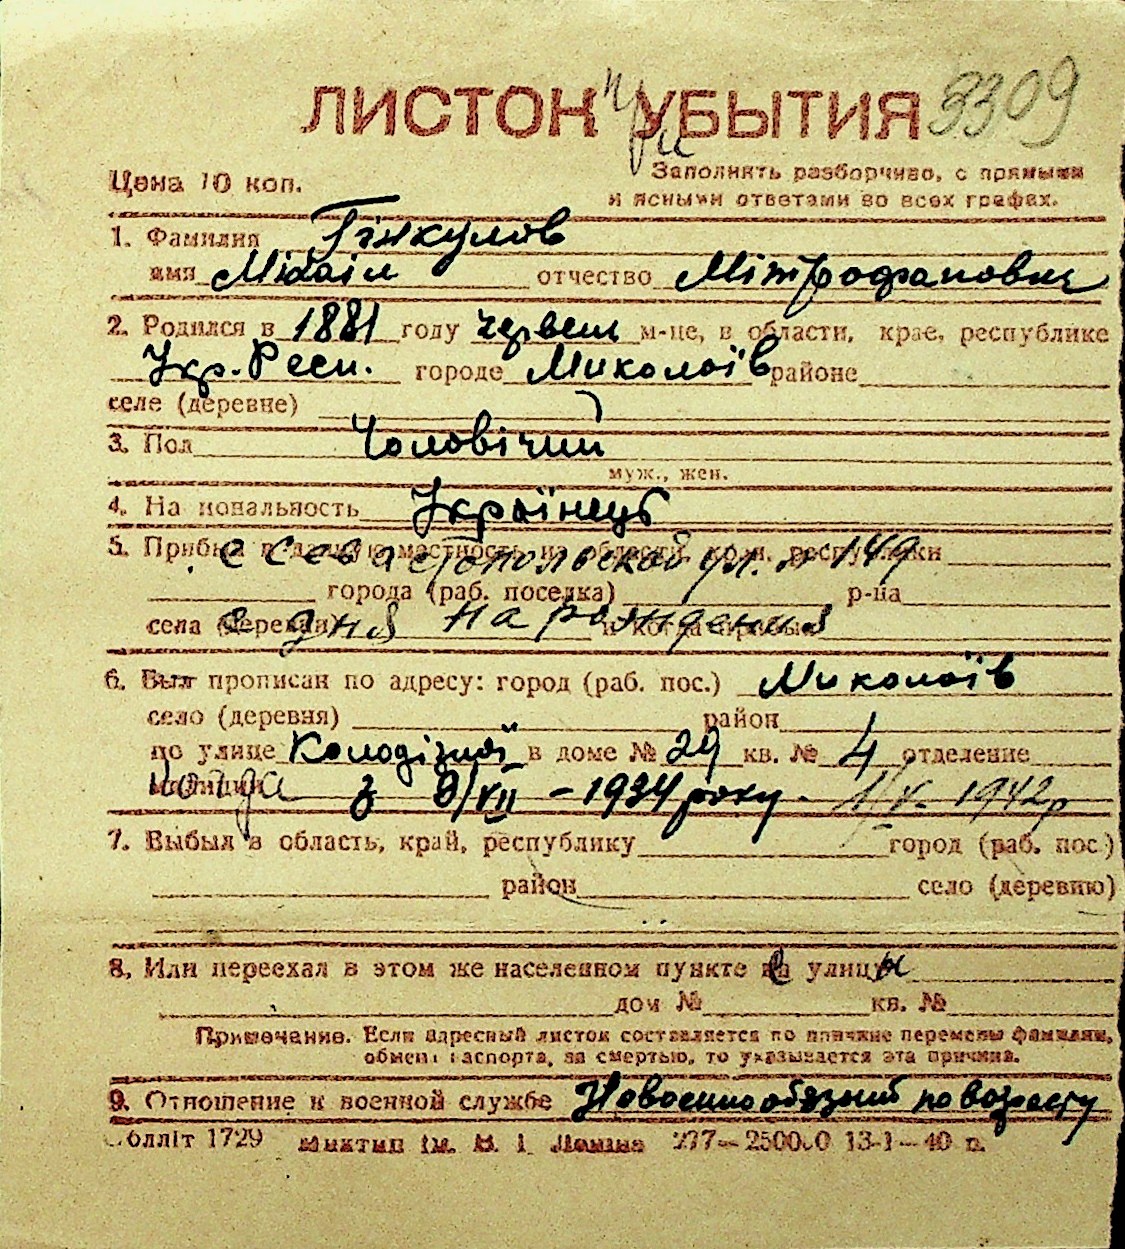 ЛИСТОК при УБЫТИЯ 3309
Цена 10 коп.
Заполнять разборчиво, с прямыми
и ясными ответами во всех графах.
1. Фамилия Гінкулов
имя Міхаіл отчество Мітрофановіч
2. Родился в 1881 году червень м-це, в области, крае, республике
Укр. Респ. городе Миколаїв районе
селе (деревне)
3. Пол Чоловічий
муж., жен.
4. Национальность Українець
5. Прибыл в данную местность из области, края, республики
с Севастопольской ул. н 149
города (раб. поселка) р-на
села (деревни) и когда прибыл
с дня народжения
6. Был прописан по адресу: город (раб. пос.) Миколаїв
село (деревня) район
по улице Колодізної в доме № 29 кв. № 4 отделение
милиции з 9/VII – 1934 року. 1/V- 1942р
7. Выбыл в область, край, республику город (раб. пос.)
район село (деревню)
8. Или переехал в этом же населенном пункте с улицы
дом № кв. №
Примечание. Если адресный листок составляется по причине перемены фамилии,
обмена паспорта, за смертью, то указывается эта причина.
9. Отношение к военной службе Новоеннообязний по возрасту
Обллiт 1729 Миктип ім. В. І. Леніна 237—250000 13-1—40 р.